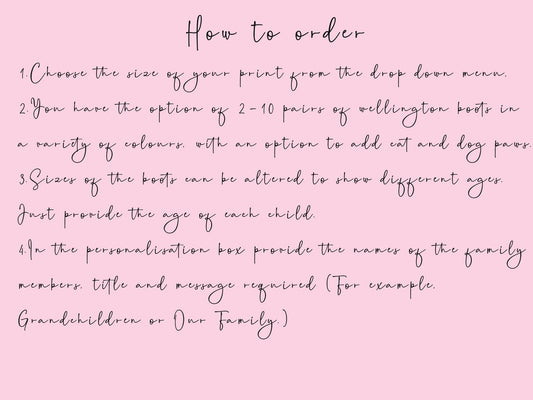 How to order
1.Choose the size of your print from the drop down menu.
2.You have the option of 2-10 pairs of wellington boots in
a variety of colours, with an option to add cat and dog paws.
3.Sizes of the boots can be altered to show different ages.
Just provide the age of each child.
4.In the personalisation box provide the names of the family
members, title and message required (For example,
Grandchildren or Our Family.)